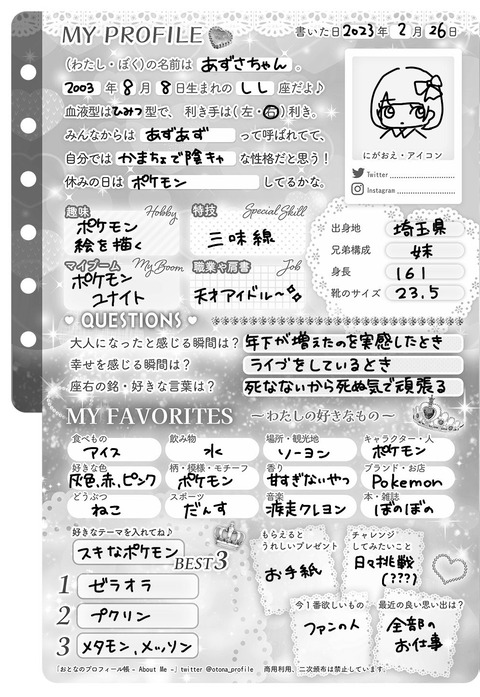 MY PROFILE
書いた日2023年 2月26日
(わたし・ぼく)の名前は あずさちゃん 。
2003年8月8日生まれの しし 座だよ♪
血液型はひみつ型で、 利き手は(左・右)利き。
みんなからは あずあず って呼ばれてて、
自分では かまちょで陰キャ な性格だと思う!
休みの日は ポケモン してるかな。
にがおえ・アイコン
Twitter
Instagram
趣味 Hobby
ポケモン
絵を描く
特技 Special Skill
三味線
マイブーム My Boom
ポケモン
ユナイト
職業や肩書 Job
天才アイドル〜
出身地 埼玉県
兄弟構成 妹
身長 161
靴のサイズ 23.5
QUESTIONS
大人になったと感じる瞬間は? 年下が増えたのを実感したとき
幸せを感じる瞬間は? ライブをしているとき
座右の銘・好きな言葉は? 死なないから死ぬ気で頑張る
MY FAVORITES 〜わたしの好きなもの〜
食べもの 飲み物 場所・観光地 キャラクター・人
アイス 水 ソーヨン ポケモン
好きな色 柄・模様・モチーフ 香り ブランド・お店
灰色、赤、ピンク ポケモン 甘すぎないやつ Pokemon
どうぶつ スポーツ 音楽 本・雑誌
ねこ だんす 滂走クレヨン ぼのぼの
好きなテーマを入れてね♪
スキなポケモン
BEST3
1 ゼラオラ
2 プクリン
3 メタモン、メッソン
もらえると
うれしいプレゼント
お手紙
チャレンジ
してみたいこと
日々挑戦
(???)
今1番欲しいもの
ファンの人
最近の良い思い出は?
全部の
お仕事
「おとなのプロフィール帳 - About Me -」twitter @otona_profile 商用利用、二次頒布は禁止しています。